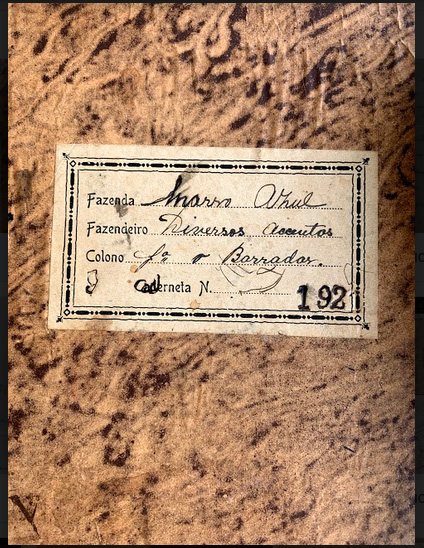 Fazenda Marso Abril
Fazendeiro Diversos accentos
Colono pª o Borrador.
Caderneta N. 192